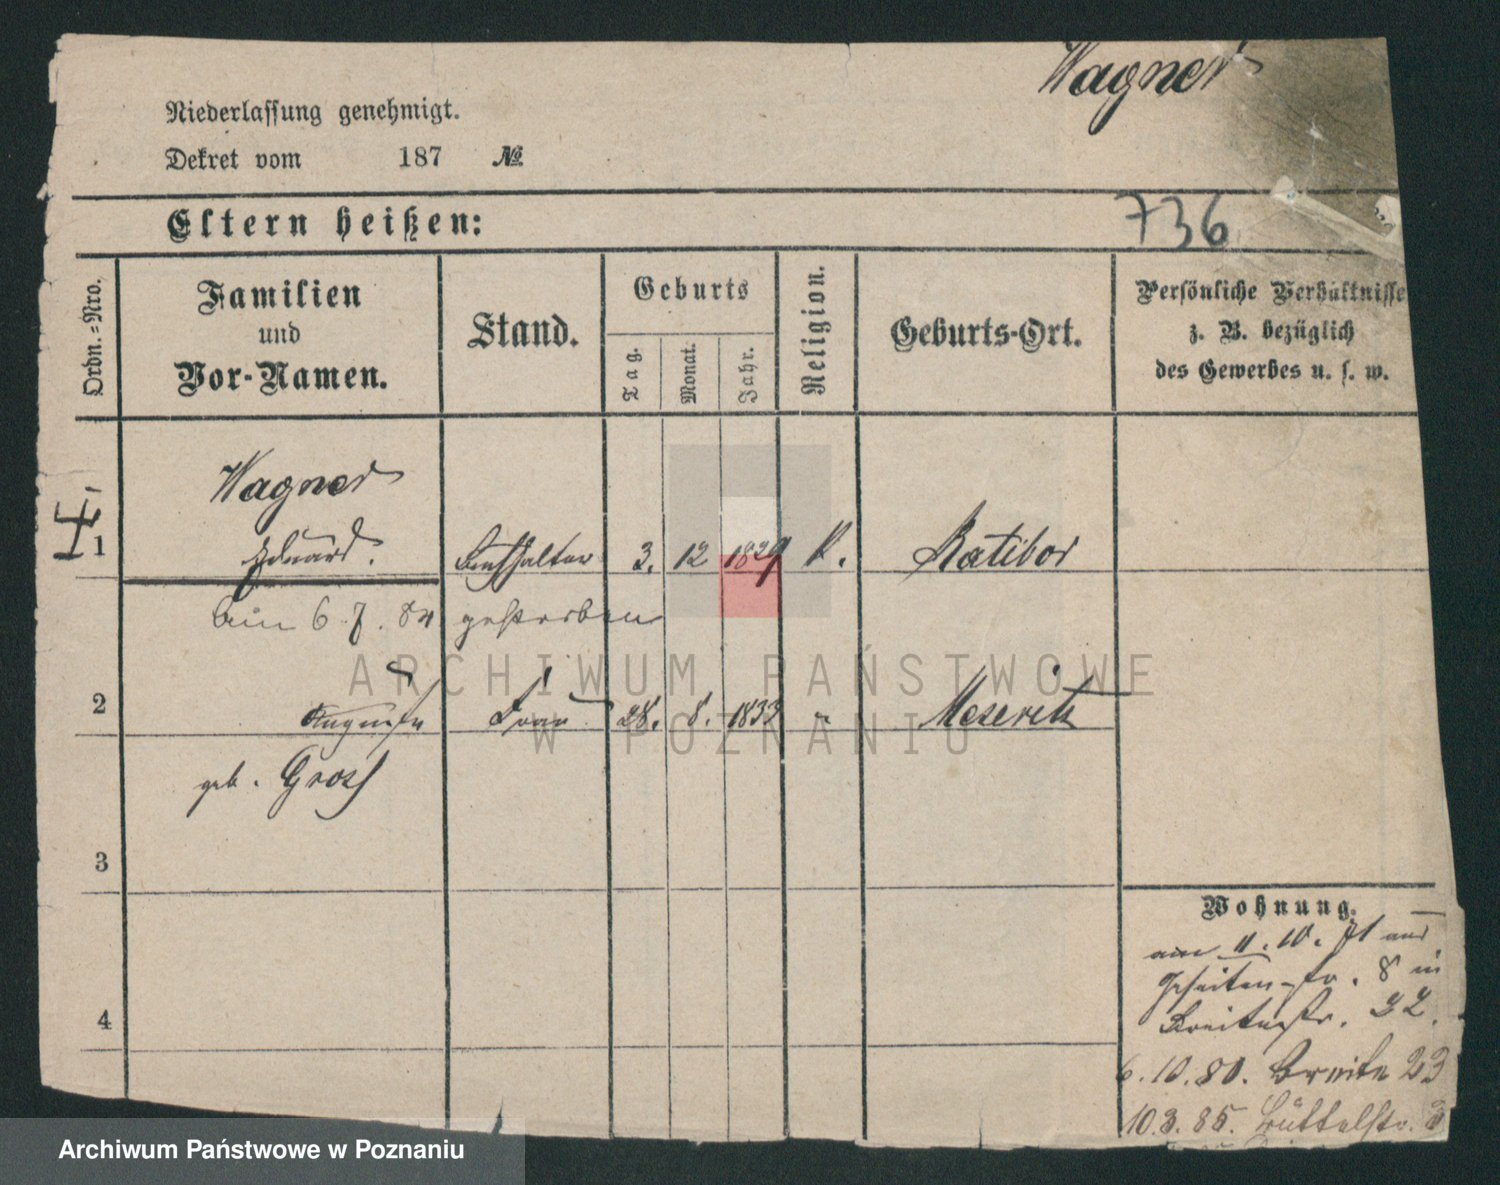 Wagner
Niederlassung genehmigt.
Dekret vom 187 №
Eltern heißen:
736
Ordn.=Nro.
Familien
und
Vor-Namen.
Stand.
Geburts
Tag.
Monat.
Jahr.
Religion.
Geburts-Ort.
Persönliche Verhältnisse
z. B. bezüglich
des Gewerbes u. s. w.
Wagner
1 Eduard. Buchhalter 3. 12 1829 K. Ratibor
am 6. 7. 84 gestorben
2 Auguste Frau 28. 8. 1833 Meseritz
geb. Gross
3
4
Wohnung.
am 11. 10. 71 aus
8 in
Breitestr. 22.
6.10.80. Breite 23
10.3.85. Büttelstr.
ARCHIWUM PAŃSTWOWE
W POZNANIU
Archiwum Państwowe w Poznaniu